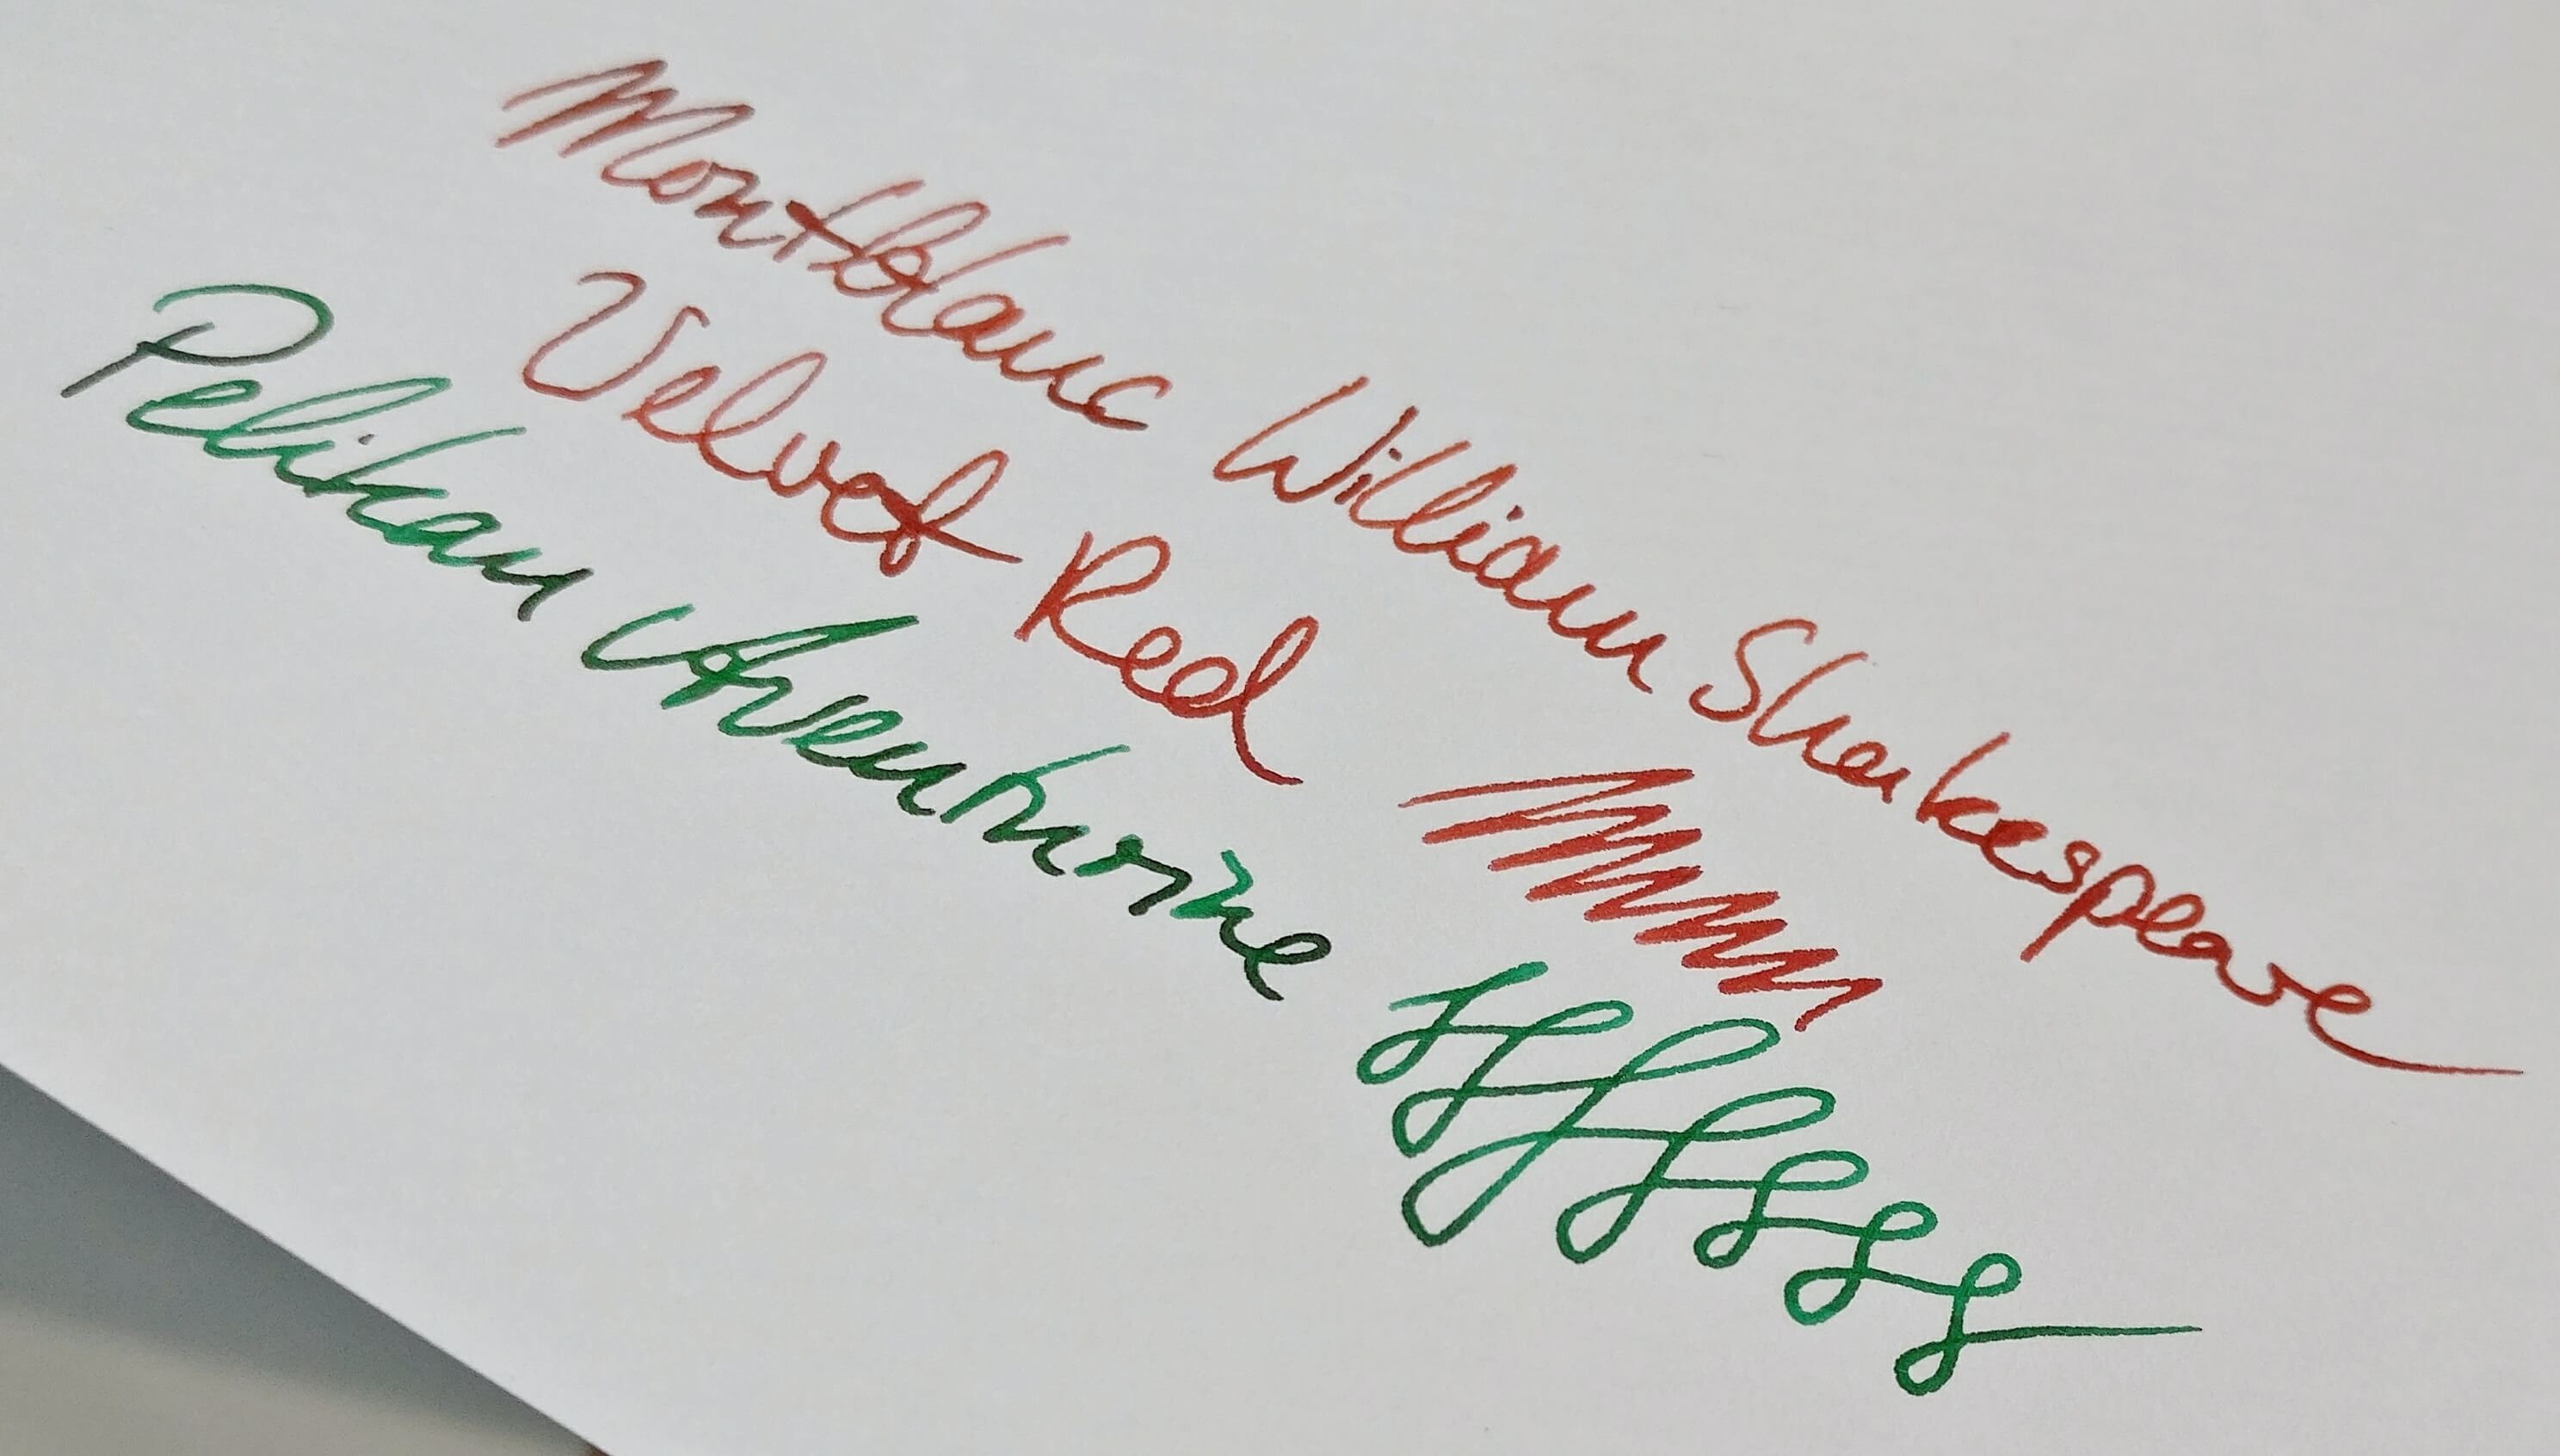 Montblanc William Shakespeare
Velvet Red
Pelikan Aventurine